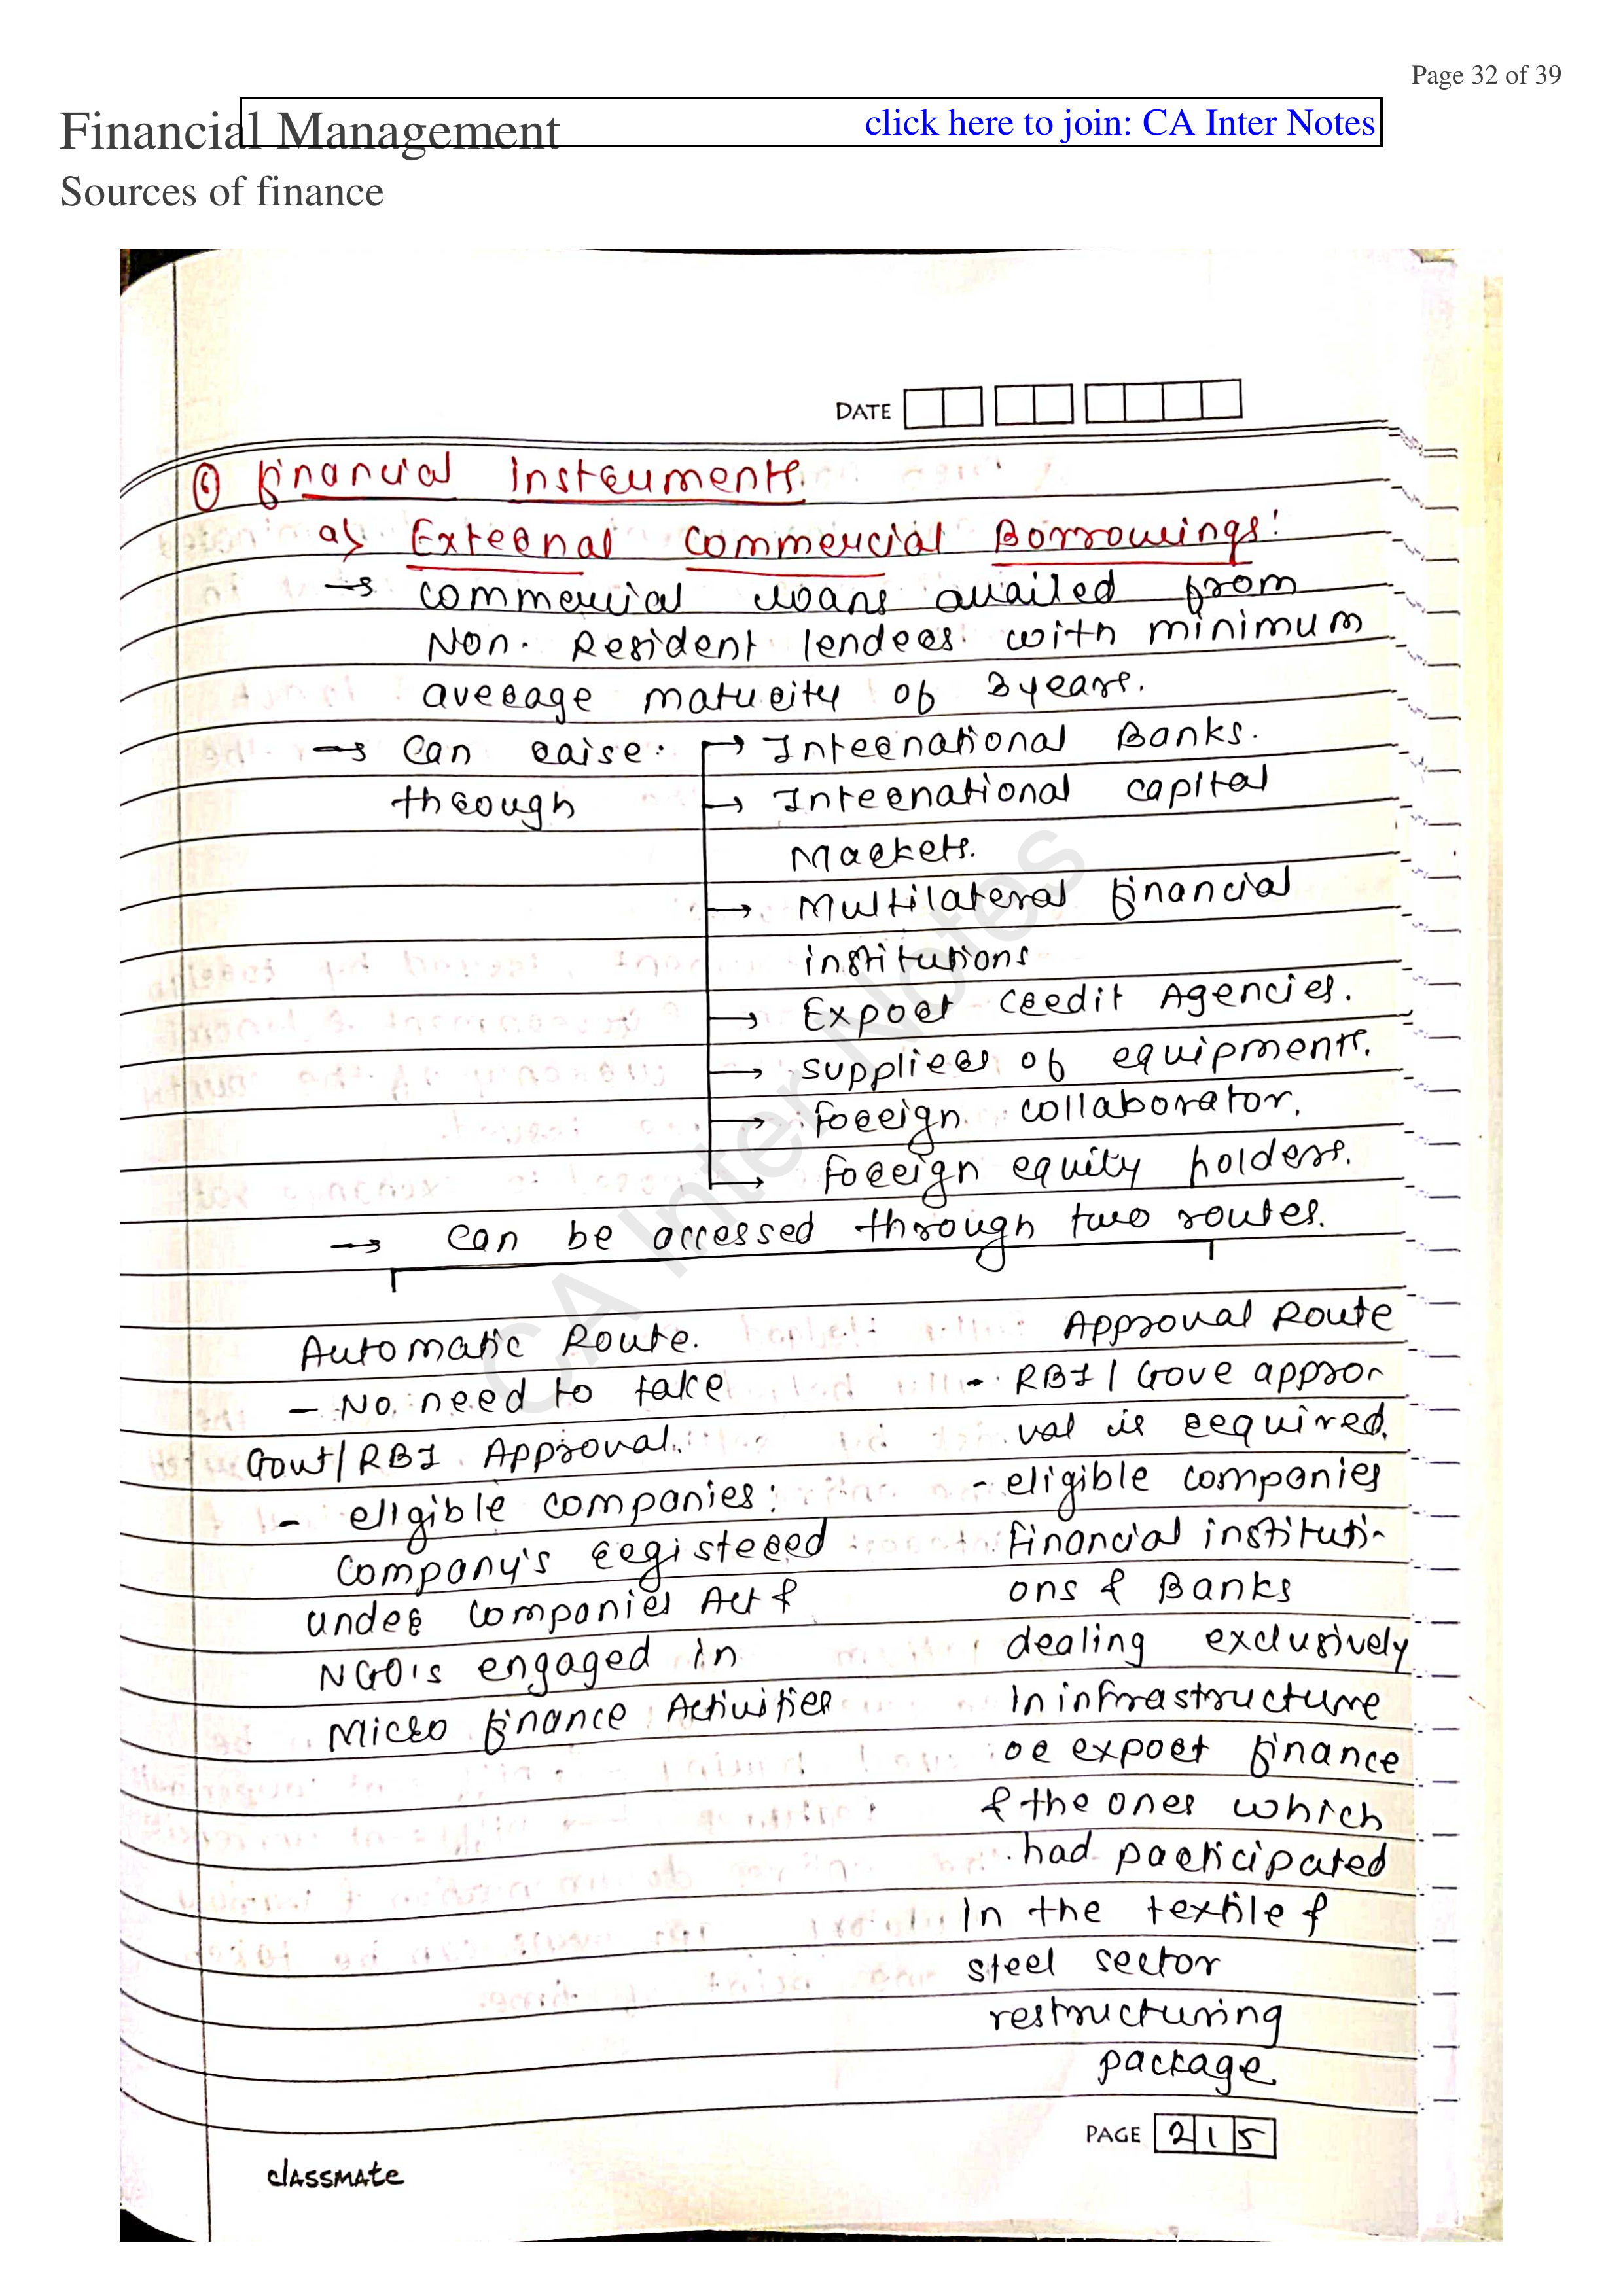 Page 32 of 39
Financial Management
click here to join: CA Inter Notes
Sources of finance
DATE
⑥ Financial Instruments
a) External Commercial Borrowings:
→ commercial loans availed from
Non. Resident lenders with minimum
average maturity of 3years.
→ can raise. → International Banks.
through → International capital
Markets.
→ Multilateral financial
institutions
→ Export credit Agencies.
→ suppliers of equipments.
→ foreign collaborator.
→ foreign equity holders.
→ can be accessed through two routes.
Automatic Route.
- No need to take
Govt/RBI Approval.
- eligible companies:
Company's registered
under Companies Act &
NGO's engaged in
Micro finance Activities
Approval Route
- RBI/Gove appro-
val is required.
- eligible companies
financial instituti-
ons & Banks
dealing exclusively
In infrastructure
or export finance
& the ones which
had participated
In the textile &
steel sector
restructuring
package
PAGE 215
classmate
CA Inter Notes